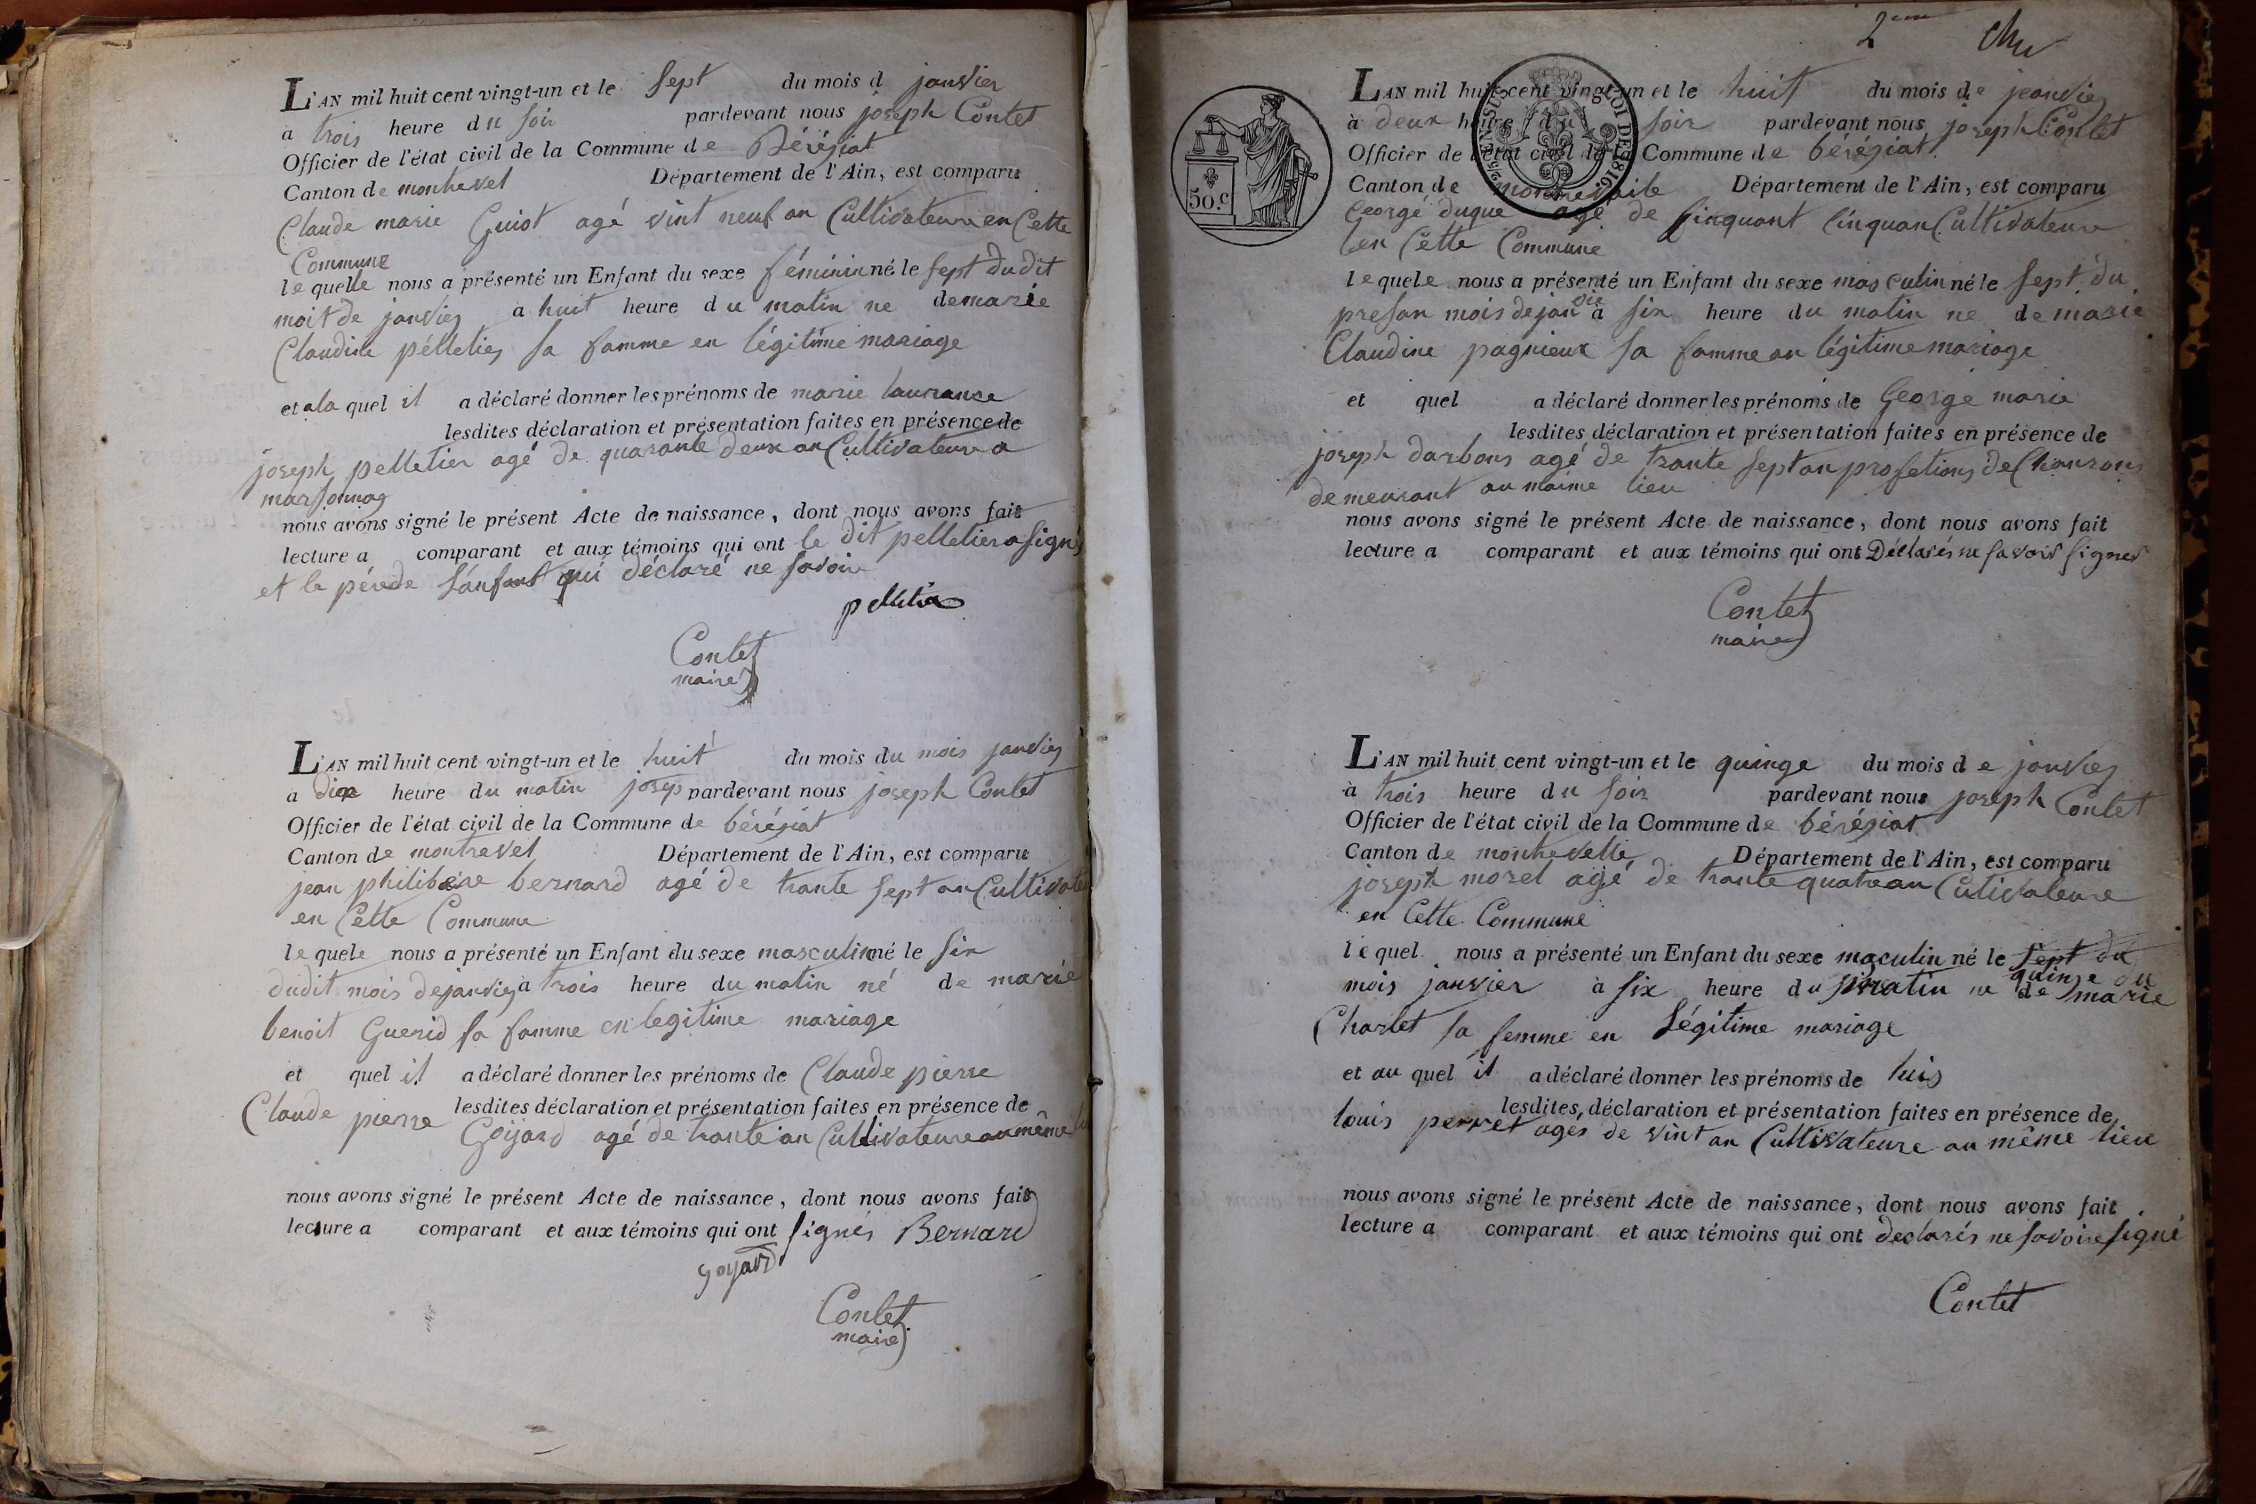 L'AN mil huit cent vingt-un et le sept du mois d janvier
a trois heure du soir pardevant nous joseph Contet
Officier de l'état civil de la Commune de Béréziat
Canton de montrevel Département de l'Ain, est comparu
Claude marie Guiot agé vint neuf an Cultivateure en Cette
Commune
le quelle nous a présenté un Enfant du sexe féminin né le sept dudit
moit de janvier a huit heure du matin ne de marie
Claudine pélletier sa famme en légitime mariage
et a la quel il a déclaré donner les prénoms de marie laurance
lesdites déclaration et présentation faites en présence de
joseph pelletier agé de quarante deux an Cultivateure a
marsonnas
nous avons signé le présent Acte de naissance, dont nous avons fait
lecture a comparant et aux témoins qui ont le dit pelletier a signé
et le pérede l'anfant qui déclaré ne savoir
pelletier
Contet
maire
L'AN mil huit cent vingt-un et le huit du mois du mois janvier
a dix heure du matin josep pardevant nous joseph Contet
Officier de l'état civil de la Commune de béréziat
Canton de montrevel Département de l'Ain, est comparu
jean philibere bernard agé de trante sept an Cultivateu
en Cette Commune
le quele nous a présenté un Enfant du sexe masculin né le six
dudit mois de janvier a trois heure du matin né de marie
benoit Guerid sa famme en legitime mariage
et quel il a déclaré donner les prénoms de Claude pierre
lesdites déclaration et présentation faites en présence de
Claude pierre Goyard agé de trante an Cultivateure au même
nous avons signé le présent Acte de naissance, dont nous avons fait
lecture a comparant et aux témoins qui ont signés Bernard
goyard
Contet
maire
2eme
50. c
L'AN mil huit cent vingt-un et le huit du mois de jeanvier
à deux heure du soir pardevant nous joseph Contet
Officier de l'état civil de la Commune de béréziat
Canton de Département de l'Ain, est comparu
George duque agé de sinquant cinquan Cultivateure
en Cette Commune
le quele nous a présenté un Enfant du sexe masculin né le sept du
presan mois de janvier à six heure du matin ne de marie
Claudine pagnieux sa famme an légitime mariage
et quel a déclaré donner les prénoms de George marie
lesdites déclaration et présentation faites en présence de
joseph darbons agé de trante sept an profetions de Chanrons
demeurant au maime lieu
nous avons signé le présent Acte de naissance, dont nous avons fait
lecture a comparant et aux témoins qui ont Déclarés ne savoir signer
Contet
maire
L'AN mil huit cent vingt-un et le quinze du mois de janvier
à trois heure du soir pardevant nous joseph Contet
Officier de l'état civil de la Commune de béréziat
Canton de montrevelle Département de l'Ain, est comparu
joseph morel agé de trante quatre an Cutivateure
en Cette Commune
le quel nous a présenté un Enfant du sexe maculin né le sept du
quinze du
mois janvier à six heure du matin ne de marie
Charlet sa femme en légitime mariage
et au quel il a déclaré donner les prénoms de luis
lesdites déclaration et présentation faites en présence de
louis perret agés de vint an Cultivateure au même lieu
nous avons signé le présent Acte de naissance, dont nous avons fait
lecture a comparant et aux témoins qui ont declarés ne savoire signé
Contet